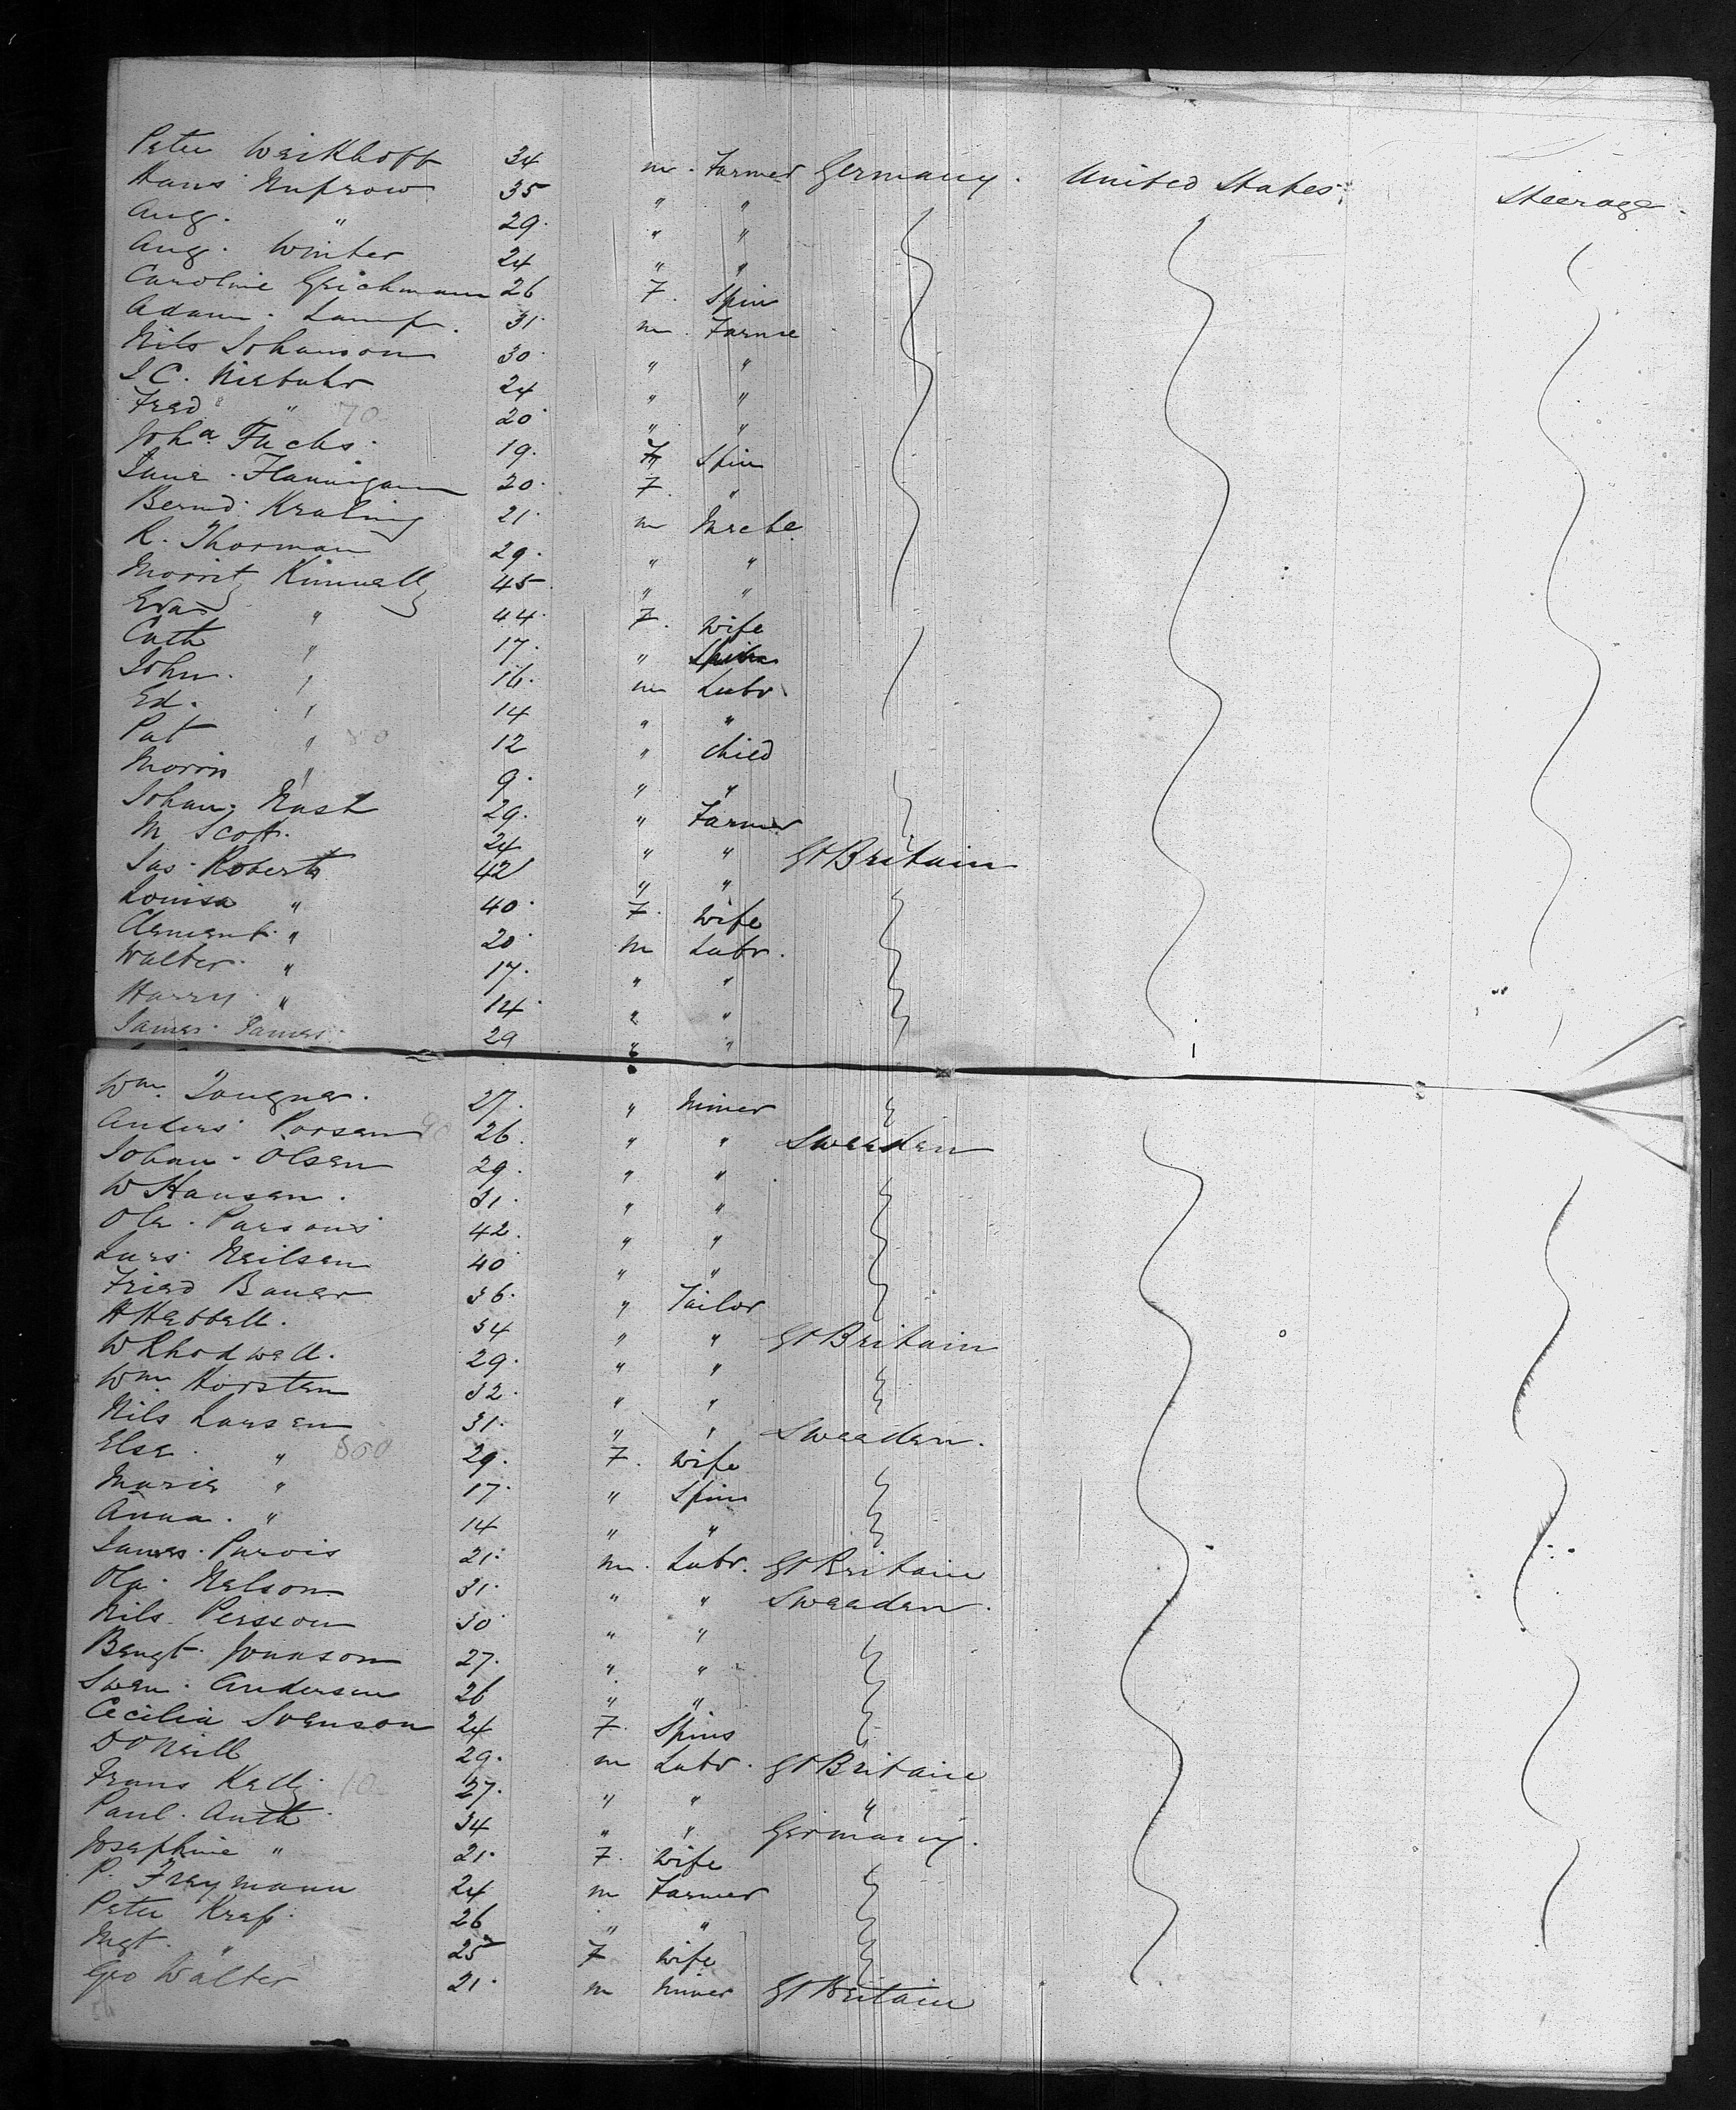 Peter Weikhoff 34 m. Farmer Germany. United States Steerage.
Hans Nuprow 35 " "
Aug. " 29. " "
Aug. Winter 24 " "
Caroline Grichmann 26 F. Spin
Adam. Lampf. 31. m. Farme
Nils Johanson 30. " "
J C. Niebuhr 24 " "
Fred " 70 20. " "
Joha Fuchs. 19. F Spin
Jane. Flannigan 20. F. "
Bernd. Kraling 21. m Mrche
R. Thorman 29. " "
Morritz Kinnelly 45 " "
Eva " 44. F. Wife
Cath " 17. " Spin
John. " 16. m Labr.
Ed. " 14 " "
Pat " 80 12 " Child
Morris " 9. " "
Johan. Nash 29. " Farmer
M Scott. 24 " " Gt Britain
Jas. Roberts 42 " "
Louisa " 40. F. Wife
Clement. " 20. m Labr.
Walter. " 17. " "
Harry. " 14. " "
James. James. 29 " "
Wm. 27. " Miner
Anders. Porsen 90 26. " " Sweeden
Johan. Olsen 29. " "
W Hansen. 31. " "
Ole. Parsons 42. " "
Lars. Neilsen 40 " "
Fried Bauer 36. " Tailor
H Hebbell. 34 " " Gt Britain
W Rhodwell. 29. " "
Wm. Horsten 32. " "
Nils Larsen 31. " " Sweeden.
Else. " 800 29. F. Wife
Maria " 17. " Spin
Anna. " 14 " "
James. Purvis 21. m. Labr. Gt Britain
Ola. Nelson. 31. " " Sweeden.
Nils. Persson 30 " "
Bengt. Jonason 27. " "
Swen. Andersen 26 " "
Cecilia Svenson 24 F. Spins
D O Neill 29. m Labr. Gt Britain
Frans Kelly. 10 27. " " "
Paul. Auth 34 " " Germany.
Josephine " 21. F. Wife
P. Freymann 24 m Farmer
Peter Kraf. 26 " "
Mgt. " 25 F Wife
Geo Walter 21. m Miner Gt Britain